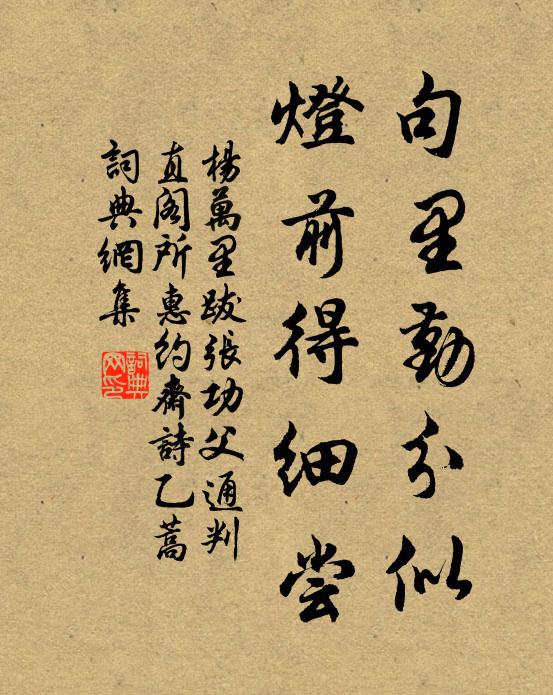 句里勤分似
燈前得細尝
楊萬里跋張功父通判
直閣所惠約齋詩乙藁
詞典網集
詞典網印